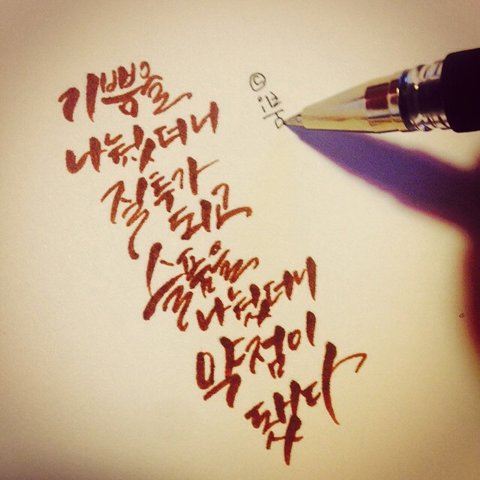 기쁨을
나눴더니
질투가
되고
슬픔을
나눴더니
약점이
됐다
©